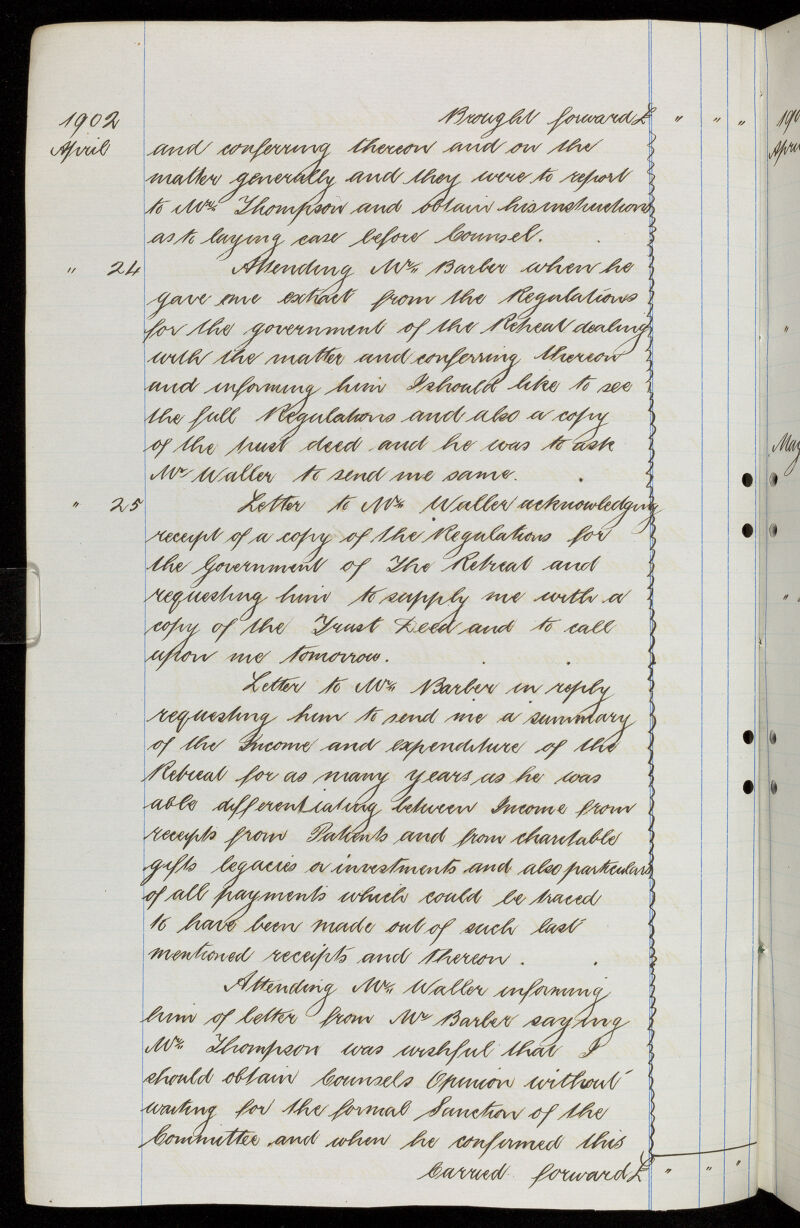 1902 Brought forward £ " " "
April and conferring thereon and on the
matter generally and they were to report
to Mr. Thompson and obtain his instructions
as to laying case before Counsel.
" 24 Attending Mr. Barber when he
gave me extract from the Regulations
for the government of the Retreat dealing
with the matter and conferring thereon
and informing him I should like to see
the full Regulations and also a copy
of the trust deed and he was to ask
Mr Waller to send me same.
" 25 Letter to Mr. Waller acknowledging
receipt of a copy of the Regulations for
the Government of The Retreat and
requesting him to supply me with a
copy of the Trust Deed and to call
upon me tomorrow.
Letter to Mr. Barber in reply
requesting him to send me a summary
of the Income and expenditure of the
Retreat for as many years as he was
able differentiating between Income from
receipts from Patients and from charitable
gifts legacies or investments and also particulars
of all payments which could be traced
to have been made out of such last
mentioned receipts and thereon.
Attending Mr. Waller informing
him of letter from Mr Barber saying
Mr. Thompson was wishful that I
should obtain Counsels Opinion without
waiting for the formal Sanction of the
Committee and when he confirmed this
Carried forward £ " " "
190
Apri
"
May
"